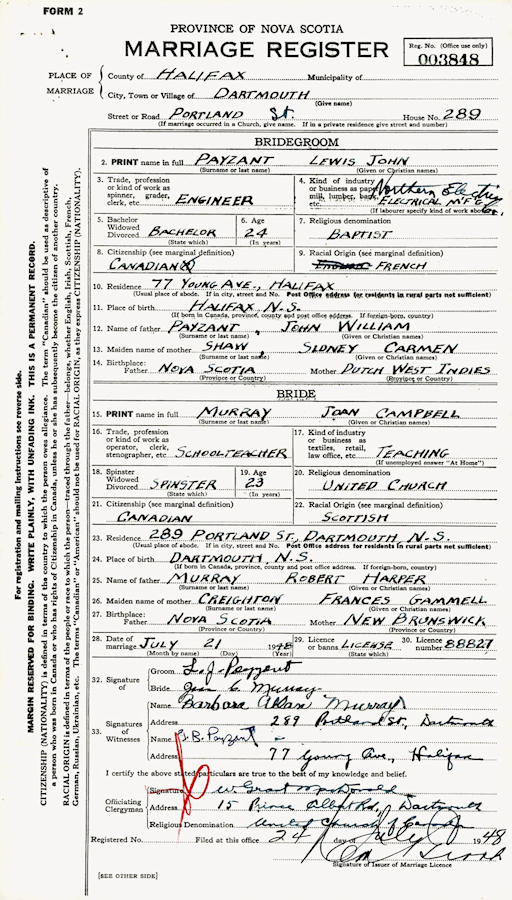 FORM 2
PROVINCE OF NOVA SCOTIA
MARRIAGE REGISTER
Reg. No. (Office use only)
003848
PLACE OF MARRIAGE
County of HALIFAX Municipality of
City, Town or Village of DARTMOUTH
(Give name)
Street or Road PORTLAND St. House No. 289
(If marriage occurred in a Church, give name. If in a private residence give street and number)
BRIDEGROOM
2. PRINT name in full PAYZANT LEWIS JOHN
(Surname or last name) (Given or Christian names)
3. Trade, profession or kind of work as spinner, grader, clerk, etc. ENGINEER
4. Kind of industry or business as paper mill, lumber, bank, etc. Northern Electric Co. ELECTRICAL M'F'G
(If labourer specify kind of work above)
5. Bachelor Widowed Divorced BACHELOR
(State which)
6. Age 24
(In years)
7. Religious denomination
BAPTIST
8. Citizenship (see marginal definition)
CANADIAN
9. Racial Origin (see marginal definition)
FRENCH
10. Residence 77 YOUNG AVE., HALIFAX
(Usual place of abode. If in city, street and No. Post Office address for residents in rural parts not sufficient)
11. Place of birth HALIFAX, N.S.
(If born in Canada, province, county and post office address. If foreign-born, country)
12. Name of father PAYZANT, JOHN WILLIAM
(Surname or last name) (Given or Christian names)
13. Maiden name of mother SHAW, SIDNEY CARMEN
(Surname or last name) (Given or Christian names)
14. Birthplace: Father NOVA SCOTIA Mother DUTCH WEST INDIES
(Province or Country) (Province or Country)
BRIDE
15. PRINT name in full MURRAY JOAN CAMPBELL
(Surname or last name) (Given or Christian names)
16. Trade, profession or kind of work as operator, clerk, stenographer, etc. SCHOOLTEACHER
17. Kind of industry or business as textiles, retail, law office, etc. TEACHING
(If unemployed answer "At Home")
18. Spinster Widowed Divorced SPINSTER
(State which)
19. Age 23
(In years)
20. Religious denomination
UNITED CHURCH
21. Citizenship (see marginal definition)
CANADIAN
22. Racial Origin (see marginal definition)
SCOTTISH
23. Residence 289 PORTLAND ST., DARTMOUTH, N.S.
(Usual place of abode. If in city, street and No. Post Office address for residents in rural parts not sufficient)
24. Place of birth DARTMOUTH, N.S.
(If born in Canada, province, county and post office address. If foreign-born, country)
25. Name of father MURRAY ROBERT HARPER
(Surname or last name) (Given or Christian names)
26. Maiden name of mother CREIGHTON FRANCES GAMMELL
(Surname or last name) (Given or Christian names)
27. Birthplace: Father NOVA SCOTIA Mother NEW BRUNSWICK
(Province or Country) (Province or Country)
28. Date of marriage JULY 21 1948
(Month by name) (Day) (Year)
29. Licence or banns LICENSE
(State which)
30. Licence number 88827
32. Signature of
Groom L. J. Payzant
Bride Joan C. Murray
33. Signatures of Witnesses
Name Barbara Allan Murray
Address 289 Portland St., Dartmouth
Name J.B. Payzant
Address 77 Young Ave., Halifax
I certify the above stated particulars are true to the best of my knowledge and belief.
Officiating Clergyman
Signature W. Grant MacDonald
Address 15 Prince Albert Rd, Dartmouth
Religious Denomination United Church of Canada
Registered No. Filed at this office 24 day of July 1948
Signature of Issuer of Marriage Licence
[SEE OTHER SIDE]
For registration and mailing instructions see reverse side.
MARGIN RESERVED FOR BINDING. WRITE PLAINLY, WITH UNFADING INK. THIS IS A PERMANENT RECORD.
CITIZENSHIP (NATIONALITY) is defined in terms of the country to which the person owes allegiance. The term "Canadian" should be used as descriptive of
a person who was born in Canada or who has rights of Citizenship in Canada, unless he or she has subsequently become the citizen of another country.
RACIAL ORIGIN is defined in terms of the people or race to which the person—traced through the father—belongs, whether English, Irish, Scottish, French,
German, Russian, Ukrainian, etc. The terms "Canadian" or "American" should not be used for RACIAL ORIGIN, as they express CITIZENSHIP (NATIONALITY).